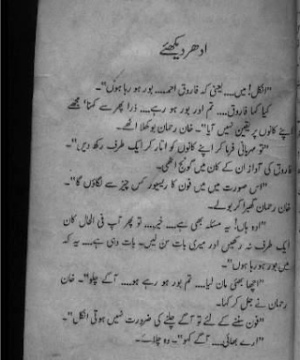 ادھر دیکھئے
"انکل! میں.... یعنی کہ فاروق احمد.... بور ہو رہا ہوں"۔
"کیا کہا فاروق.... تم اور بور ہو رہے.... ذرا پھر سے کہنا' مجھے
اپنے کانوں پر یقین نہیں آیا"۔ خان رحمان بوکھلا اٹھے۔
"تو مہربانی فرما کر اپنے کانوں کو اتار کر ایک طرف رکھ دیں"۔
فاروق کی آواز ان کے کان میں گونج اٹھی۔
"اس صورت میں میں فون کا ریسیور کس چیز سے لگاؤں گا"۔
خان رحمان گھبرا کر بولے۔
"اوہ ہاں! یہ مسئلہ بھی ہے.... خیر.... تو پھر آپ فی الحال کان
ایک طرف نہ رکھیں اور میری بات سن لیں۔ بات وہی ہے.... یہ کہ
میں بور ہو رہا ہوں"۔
"اچھا بھئی مان لیا.... تم بور ہو رہے ہو.... آگے چلو"۔ خان
رحمان نے جل کر کہا۔
"فون سننے کے لئے تو آگے چلنے کی ضرورت نہیں ہوتی انکل"۔
"ارے بھائی.... آگے کہو"۔ وہ چلائے۔